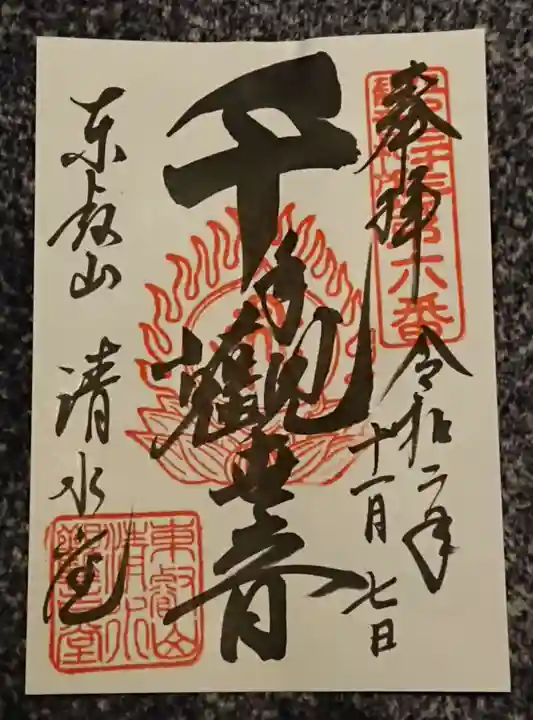 奉拝
令和二年
十一月七日
千手観世音
東叡山 清水堂
東叡山
清水
観音堂